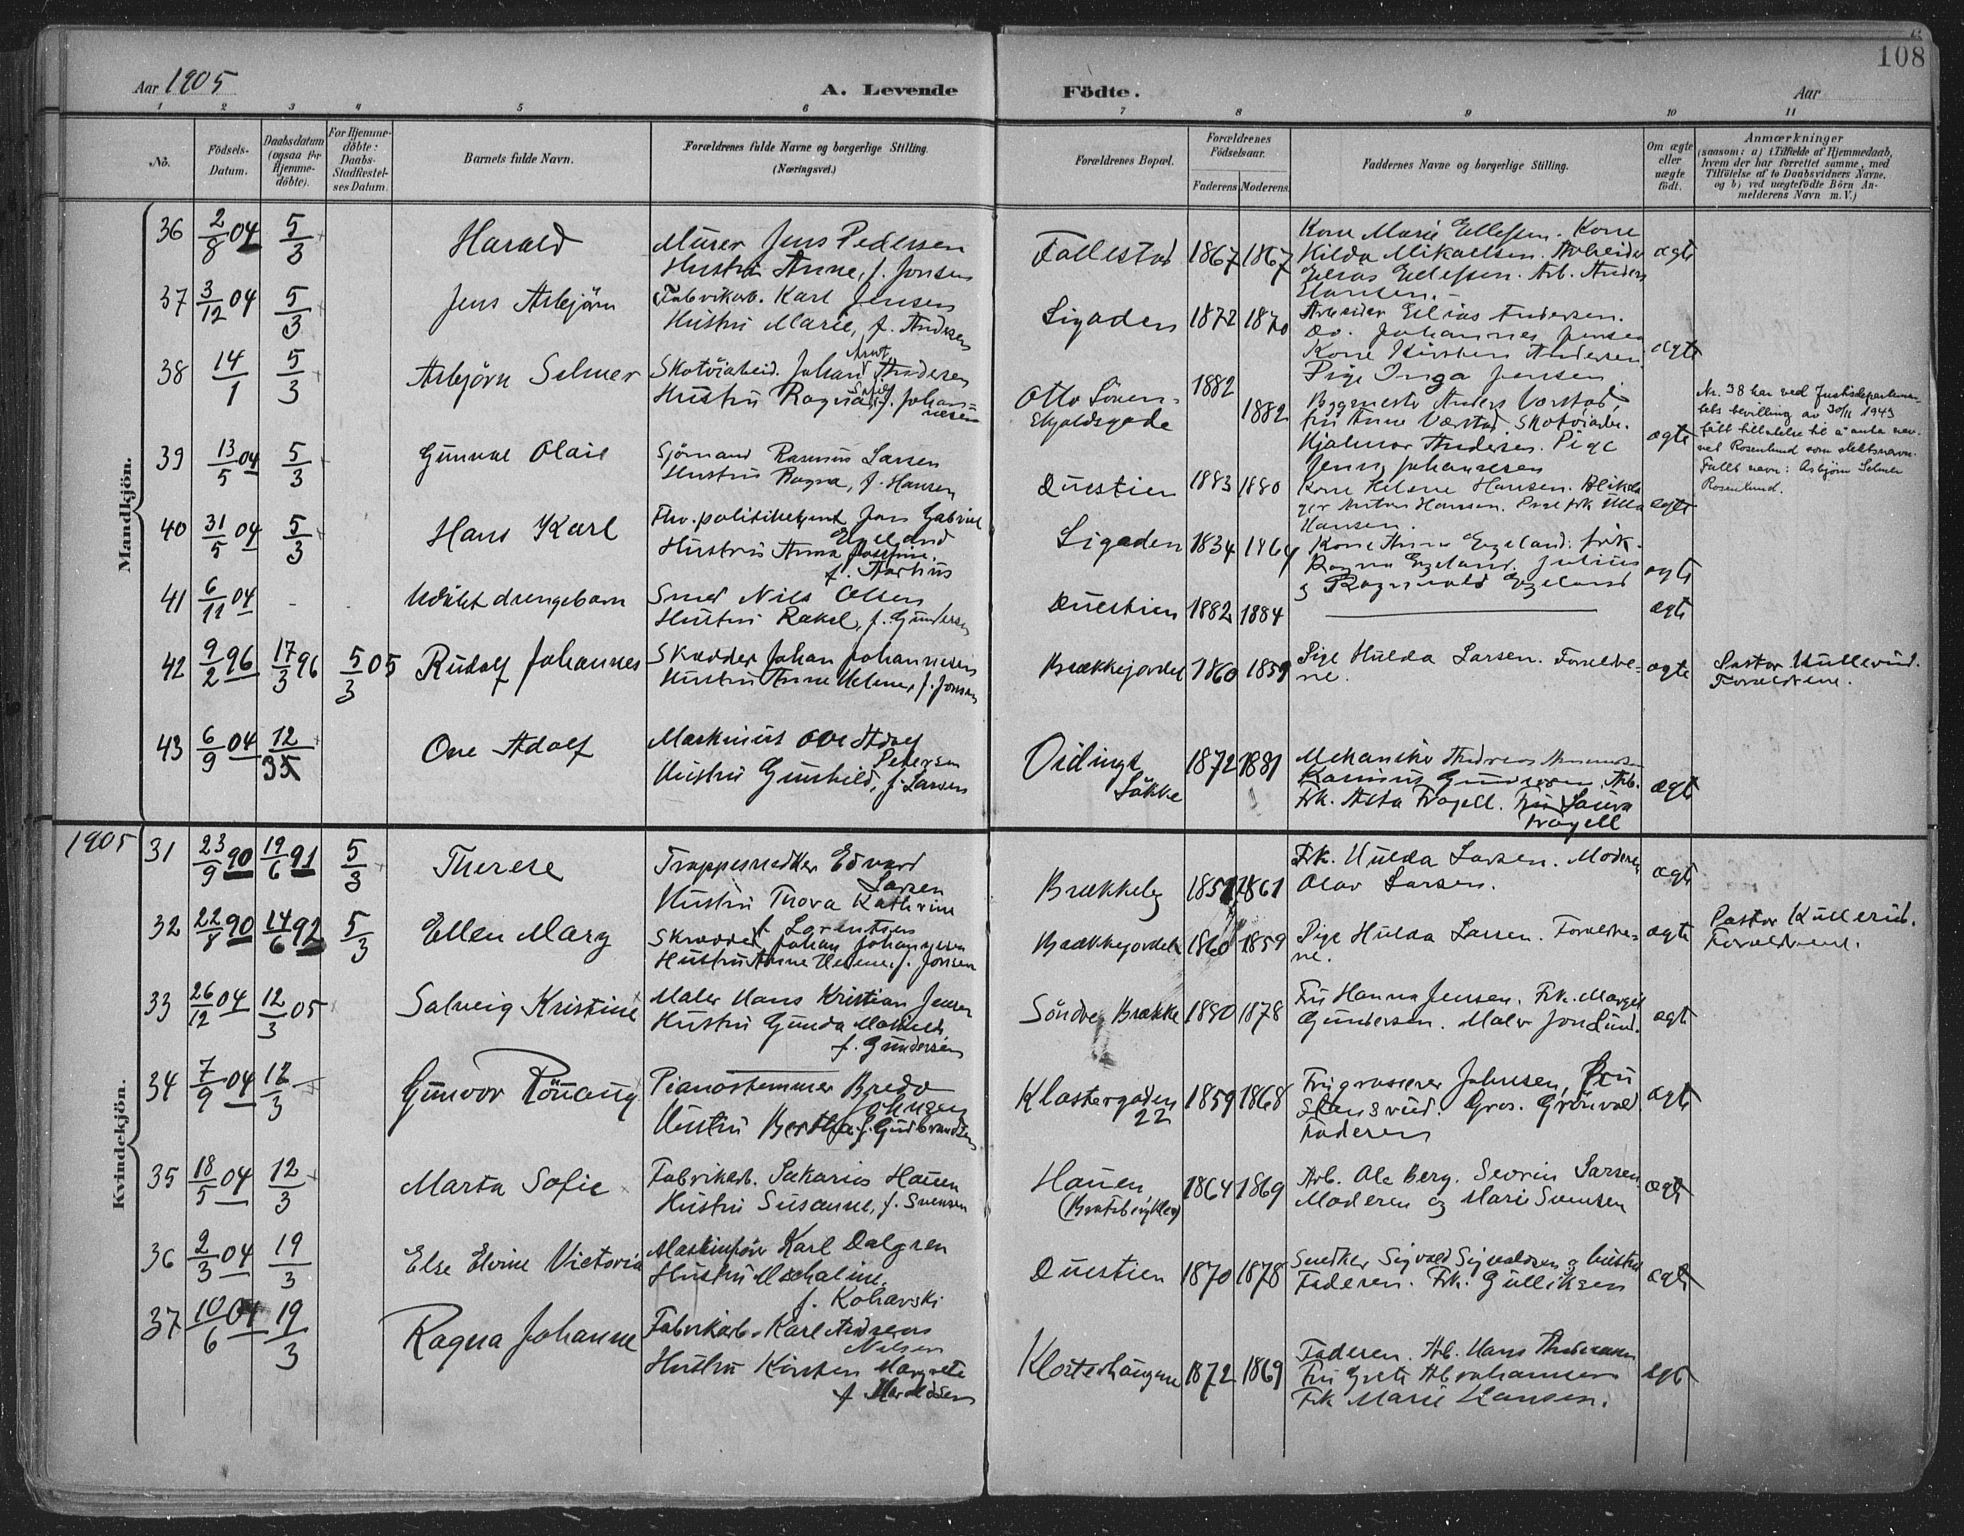 108
Aar 1905
A. Levende
Födte.
Aar
1 2 3 4 5 6 7 8 9 10 11
No.
Födsels-
Datum.
Daabsdatum
(ogsaa for
Hjemme-
döbte).
For Hjemme-
döbte:
Daabs-
Stadfæstel-
ses Datum.
Barnets fulde Navn.
Forældrenes fulde Navne og borgerlige Stilling.
(Næringsvei.)
Forældrenes Bopæl.
Forældrenes
Födselsaar.
Faderens Moderens
Faddernes Navne og borgerlige Stilling.
Om ægte
eller
uægte
födt.
Anmærkninger
(saasom: a) i Tilfælde af Hjemmedaab,
hvem der har forrettet samme, med
Tilföielse af to Daabsvidners Navne,
og b) ved uægtefödte Börn An-
melderens Navn m. V.)
Mandkjön.
36 2/8 04 5/3 Harald
Murer Jens Pedersen
Hustru Anne, f. Jonsen
Follestad 1867 1867
Kone Marie Ellefsen. Kone
Hilda Mikaelsen. Arbeider
Elias Ellefsen. Arb. Anders
Hansen.
ægte
37 3/12 04 5/3 Jens Asbjörn
Fabrikarb. Karl Jensen
Hustru Marie, f. Andersen
Ligaden 1872 1870
Arbeider Elias Andersen.
Do. Johannes Jensen
Kone Kirsten Andersen
Pige Inga Jensen
ægte
38 14/1 5/3 Asbjörn Selmer
Skotöiarbeid. Johan Arnt Andersen
Hustru Ragna Sofie f. Johan-
nesen
Otto Sönen-
Skjoldsgade
1882 1882
Byggmester Anders Værstad,
fru Anne Værstad, Skotöiarbe.
Hjalmar Andersen. Pige
Jenny Johannesen
ægte
Nr. 38 har ved Justisdepartemen-
tets bevilling av 30/11 1943
fått tillatelse til å anta nav-
net Rosenlund som slektsnavn.
Fullt navn: Asbjørn Selmer
Rosenlund.
39 13/5 04 5/3 Gunval Olaie
Sjömand Rasmus Larsen
Hustru Ragna, f. Hansen
Duestien 1883 1880
Kone Helene Hansen. Blikla
ger Anton Hansen.
Hansen.
ægte
40 31/5 04 5/3 Hans Karl
Fhv. politibetjent Jens Gabriel
Egeland
Hustru Anna Josefine.
f. Martius
Ligaden 1834 1864
Kone Anna Egeland. frk.
Ragna Egeland. Julius
g Ragnvald Egeland
ægte
41 6/11 04 - Udöbt drengebarn
Smed Nils Olsen
Hustru Rakel, f. Gundersen
Duestien 1882 1884
ægte
42 9/2 96 17/3 96 5/3 05 Rudolf Johannes
Skrædder Johan Johannesen
Hustru Anne Helene, f. Jonsen
Brækkejordet 1860 1859
Pige Hulda Larsen. Foreldre-
ne.
ægte
Pastor Kullerud.
Foreldrene.
43 6/9 04 12/3 5 Ove Adolf
Maskinist Ove Adolf
Petersen
Hustru Gunhild, f. Larsen
Vidings
Løkke
1872 1881
Mekaniker Andreas
Rasmus Gundersen, Arb.
Frk. Asta Frogell. Fru Laura
Frogell
ægte
Kvindekjön.
1905
31 23/9 90 19/6 91 5/3 Therese
Trappesnedker Edvard
Larsen
Hustru Thora Kathrine
f. Lorentsen
Brækkeby 1857 1861
Frk. Hulda Larsen. Moderen
Olav Larsen.
ægte
32 22/8 90 14/6 92 5/3 Ellen Mary
Skrædder Johan Johannesen
Hustru Anne Helene, f. Jonsen
Brækkejordet 1860 1859
Pige Hulda Larsen. Foreldre-
ne.
ægte
Pastor Kullerud.
Foreldrene.
33 26/12 04 12/3 05 Solveig Kristine
Maler Hans Kristian Jensen
Hustru Gunda Mathilde
f. Gundersen
Söndre Brække 1880 1878
Fru Hanna Jensen. Frk. Margit
Gundersen. Maler Jon Lund.
ægte
34 7/9 04 12/3 Gunvor Rönaug
Pianostemmer Bredo
Johnsen
Hustru Bertha f. Gudbrandsen
Klostergaden
22
1859 1868
Frugrosserer Johnsen, Fru
Stensrud. Gros. Grönvold
Faderen
ægte
35 18/5 04 12/3 Marta Sofie
Fabrikarb. Sakarias Hauen
Hustru Susanne, f. Svensen
Hauen
(Bratsbergkleo)
1864 1869
Arb. Ole Berg. Sevrin Larsen
Moderen og Marie Svensen
ægte
36 2/3 04 19/3 Else Elvine Victoria
Maskinför Karl Dalgren
Hustru Michaline
f. Kohavski
Duestien 1870 1878
Snedker Sigvald Sigvaldsen og hustru
Faderen. Frk. Gulliksen
ægte
37 10/6 04 19/3 Ragna Johanne
Fabrikarb. Karl Andreas
Nilsen
Hustru Kirsten Margrete
f. Haraldsen
Klosterhaugene 1872 1869
Faderen. Arb. Hans Andersen
Fru Grete Abrahamsen
Frk Marie Hansen.
ægte